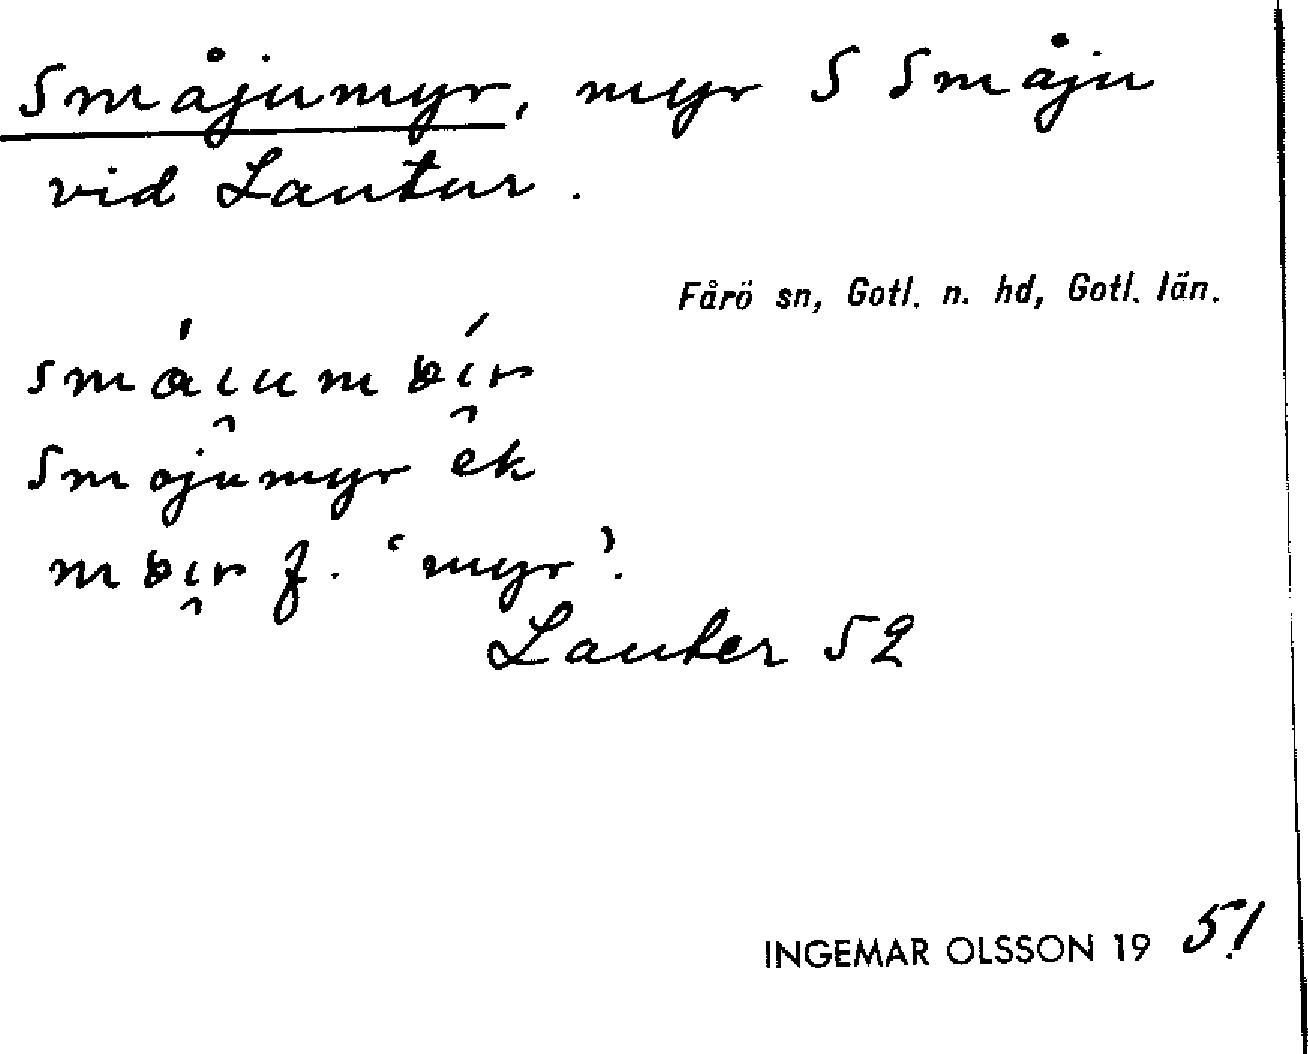 Småjumyr, myr S Småju
vid Lautur.
Fårö sn, Gotl. n. hd, Gotl. län.
Smojumyr ek
f. 'myr'.
Lauter 52
INGEMAR OLSSON 19 51